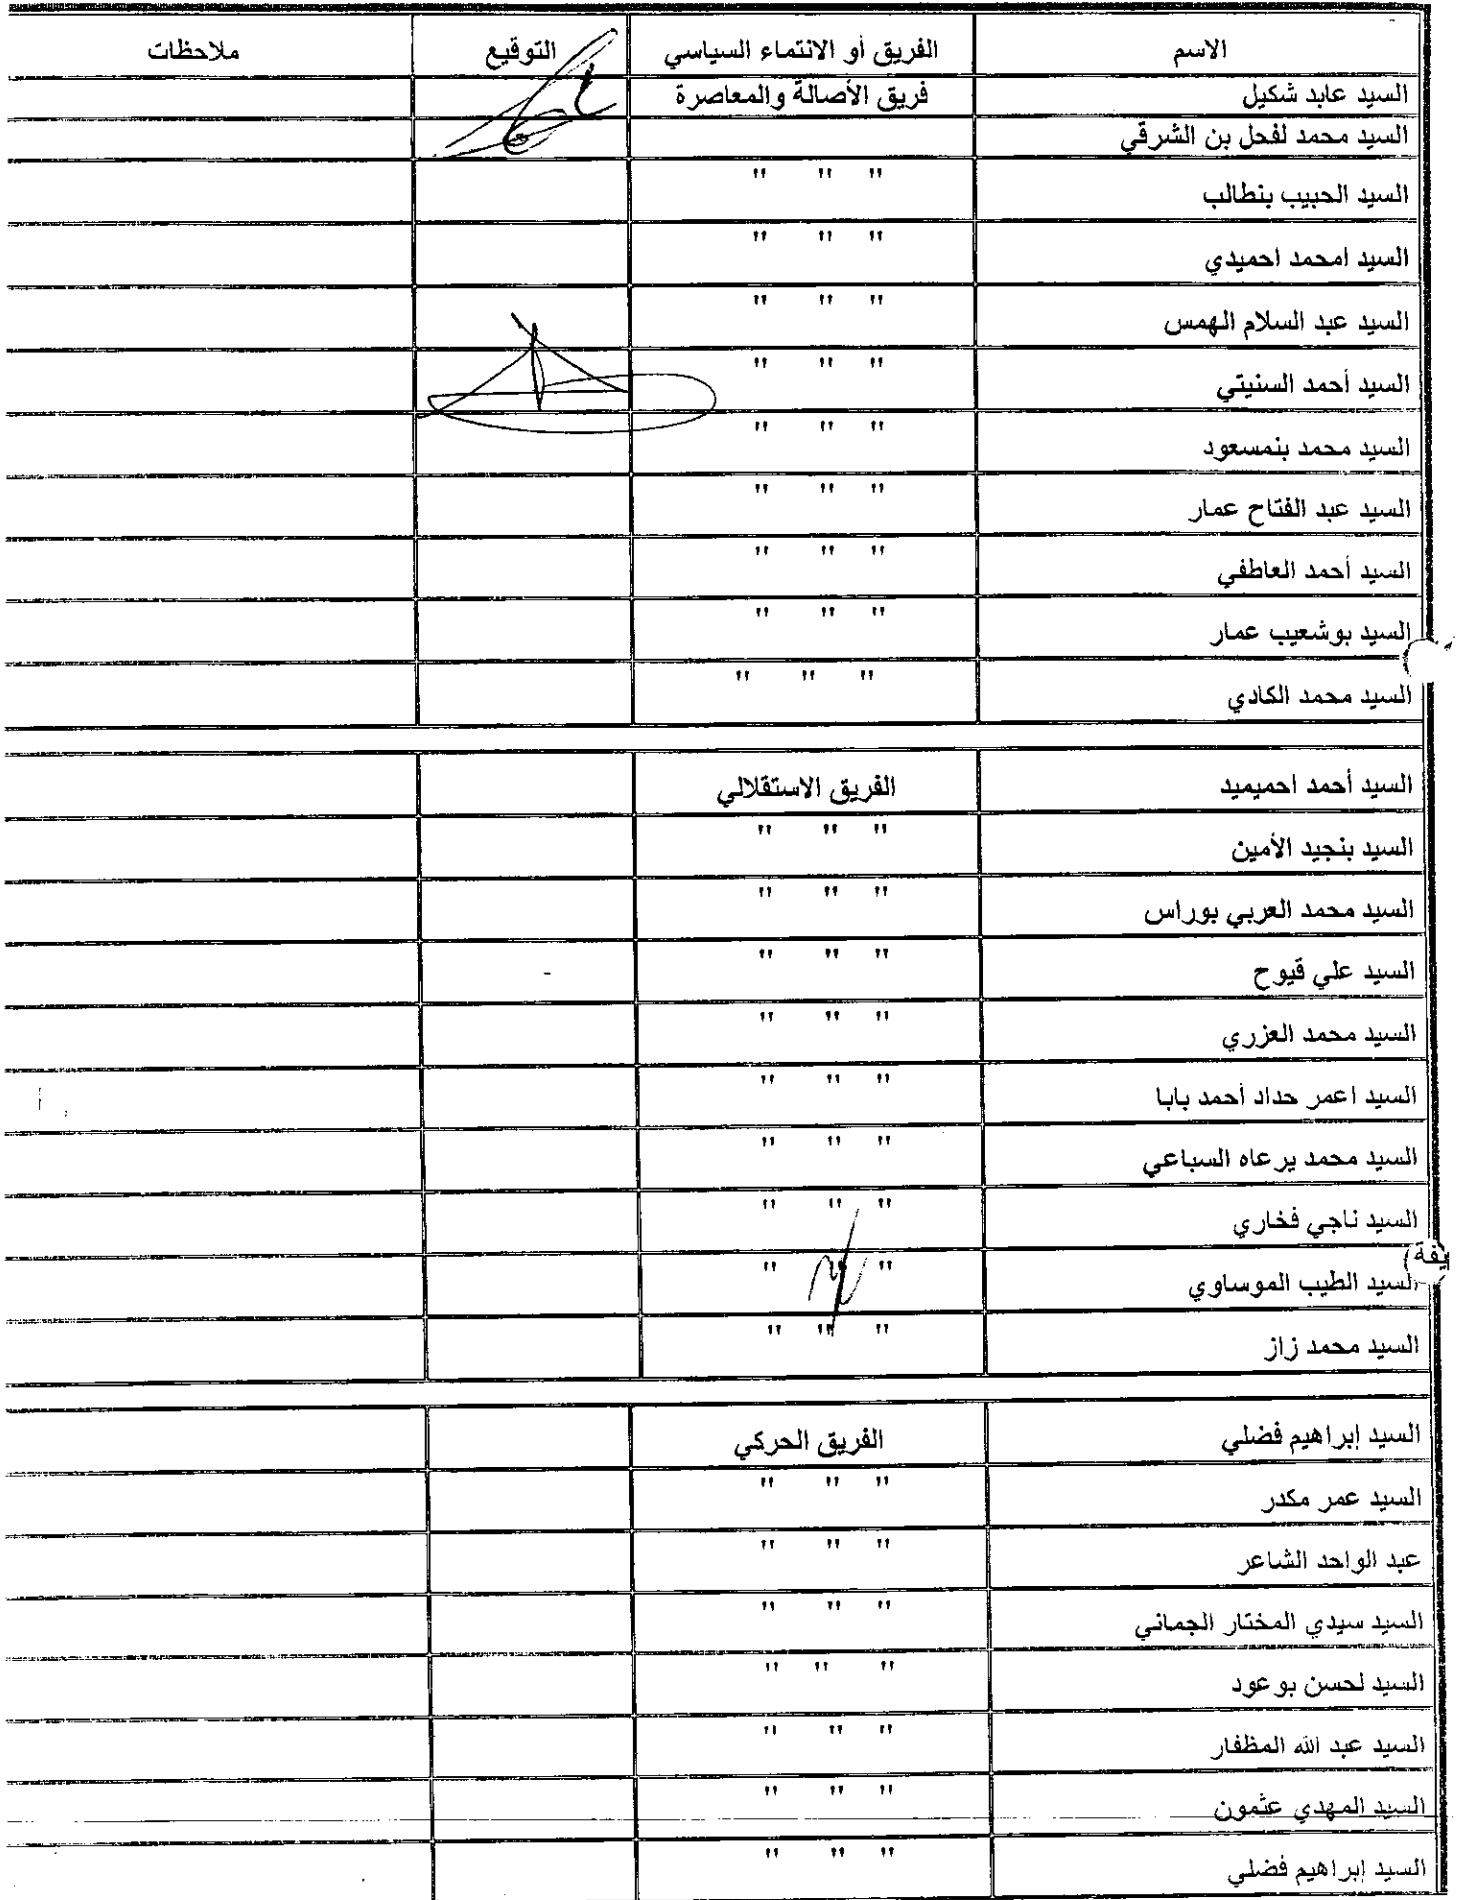 الاسم الفريق أو الانتماء السياسي التوقيع ملاحظات
السيد عابد شكيل فريق الأصالة والمعاصرة
السيد محمد لفحل بن الشرقي
السيد الحبيب بنطالب " " "
السيد امحمد احميدي " " "
السيد عبد السلام الهمس " " "
السيد أحمد السنيتي " " "
السيد محمد بنمسعود " " "
السيد عبد الفتاح عمار " " "
السيد أحمد العاطفي " " "
السيد بوشعيب عمار " " "
السيد محمد الكادي " " "
السيد أحمد احميميد الفريق الاستقلالي
السيد بنجيد الأمين " " "
السيد محمد العربي بوراس " " "
السيد علي قيوح " " " -
السيد محمد العزري " " "
السيد اعمر حداد أحمد بابا " " "
السيد محمد يرعاه السباعي " " "
السيد ناجي فخاري " " "
يفة)
السيد الطيب الموساوي " " "
السيد محمد زاز " " "
السيد إبراهيم فضلي الفريق الحركي
السيد عمر مكدر " " "
عبد الواحد الشاعر " " "
السيد سيدي المختار الجماني " " "
السيد لحسن بوعود " " "
السيد عبد الله المظفار " " "
السيد المهدي عثمون " " "
السيد إبراهيم فضلي " " "